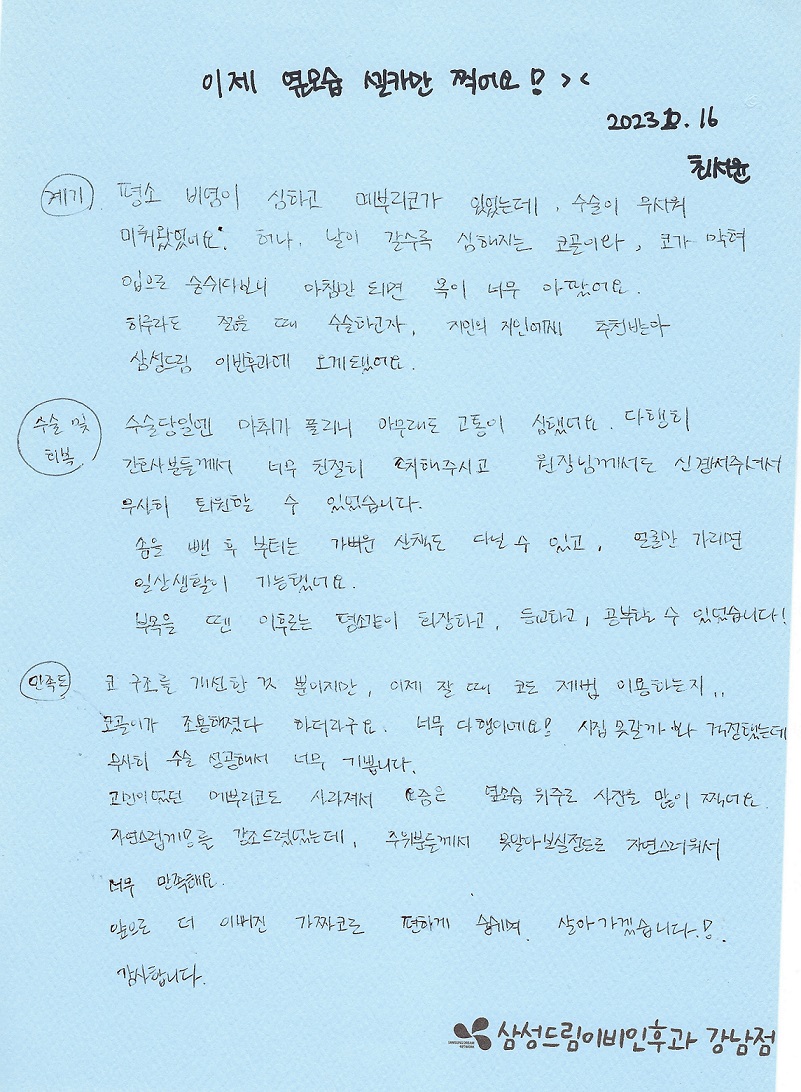 이제 옆모습 셀카만 찍어요! ><
2023.10.16
최서윤
계기 평소 비염이 심하고 메부리코가 있었는데, 수술이 무서워
미뤄왔었어요. 허나, 날이 갈수록 심해지는 코골이와, 코가 막혀
입으로 숨쉬다보니 아침만 되면 목이 너무 아팠어요.
하루라도 젊을 때 수술하고자, 지인의 지인에게 추천받아
삼성드림 이빈후과에 오게됐어요.
수술 및 회복 수술당일엔 마취가 풀리니 아무래도 고통이 심했어요. 다행히
간호사분들께서 너무 친절히 대해주시고 원장님께서도 신경써주셔서
무사히 퇴원할 수 있었습니다.
솜을 뺀 후 부터는 가벼운 산책도 다닐 수 있고, 얼굴만 가리면
일상생활이 가능했어요.
부목을 뗀 이후로는 평소같이 화장하고, 등교하고, 공부할 수 있었습니다!
만족도 코 구조를 개선한 것 뿐이지만, 이제 잘 때 코도 제법 이용하는지..
코골이가 조용해졌다 하더라구요. 너무 다행이에요! 시집 못갈까 봐 걱정했는데
무사히 수술 성공해서 너무 기쁩니다.
고민이었던 메부리코도 사라져서 요즘은 옆모습 위주로 사진을 많이 찍어요.
자연스럽게를 강조드렸었는데, 주위분들께서 못알아보실정도로 자연스러워서
너무 만족해요.
앞으로 더 이뻐진 가짜코로 편하게 숨쉬며 살아가겠습니다!
감사합니다.
삼성드림이비인후과 강남점